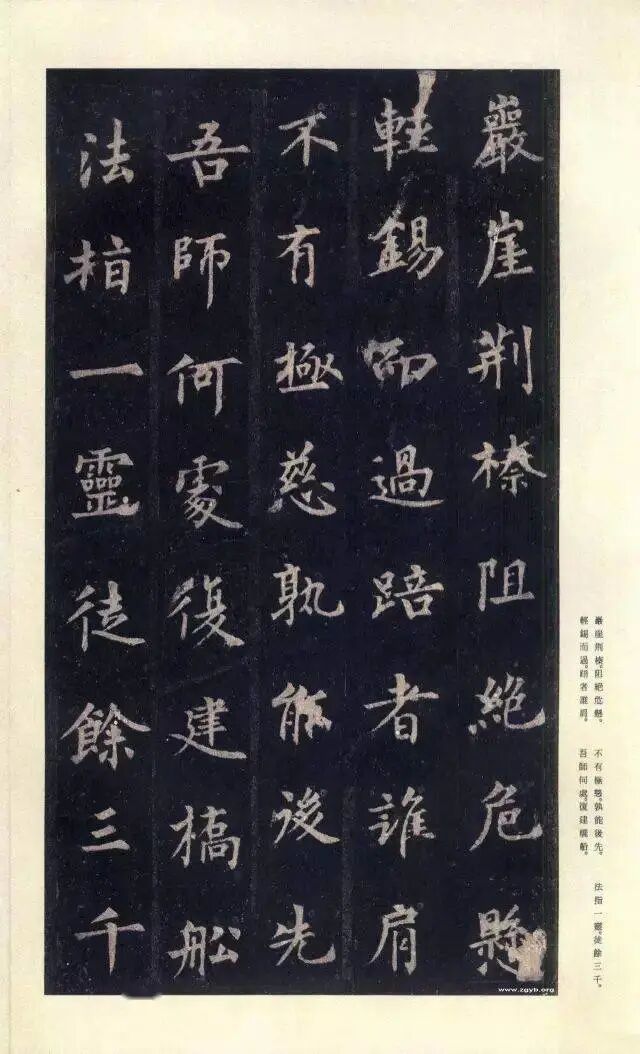 巖崖荆榛阻絶危懸
輕錫而過踣者誰肩
不有極慈孰能後先
吾師何處復建橋船
法指一靈徒餘三千
www.zgyb.org
巖崖荆榛。阻絶危懸。 不有極慈。孰能後先。 法指一靈。徒餘三千。
輕錫而過。踣者誰肩。 吾師何處。復建橋船。